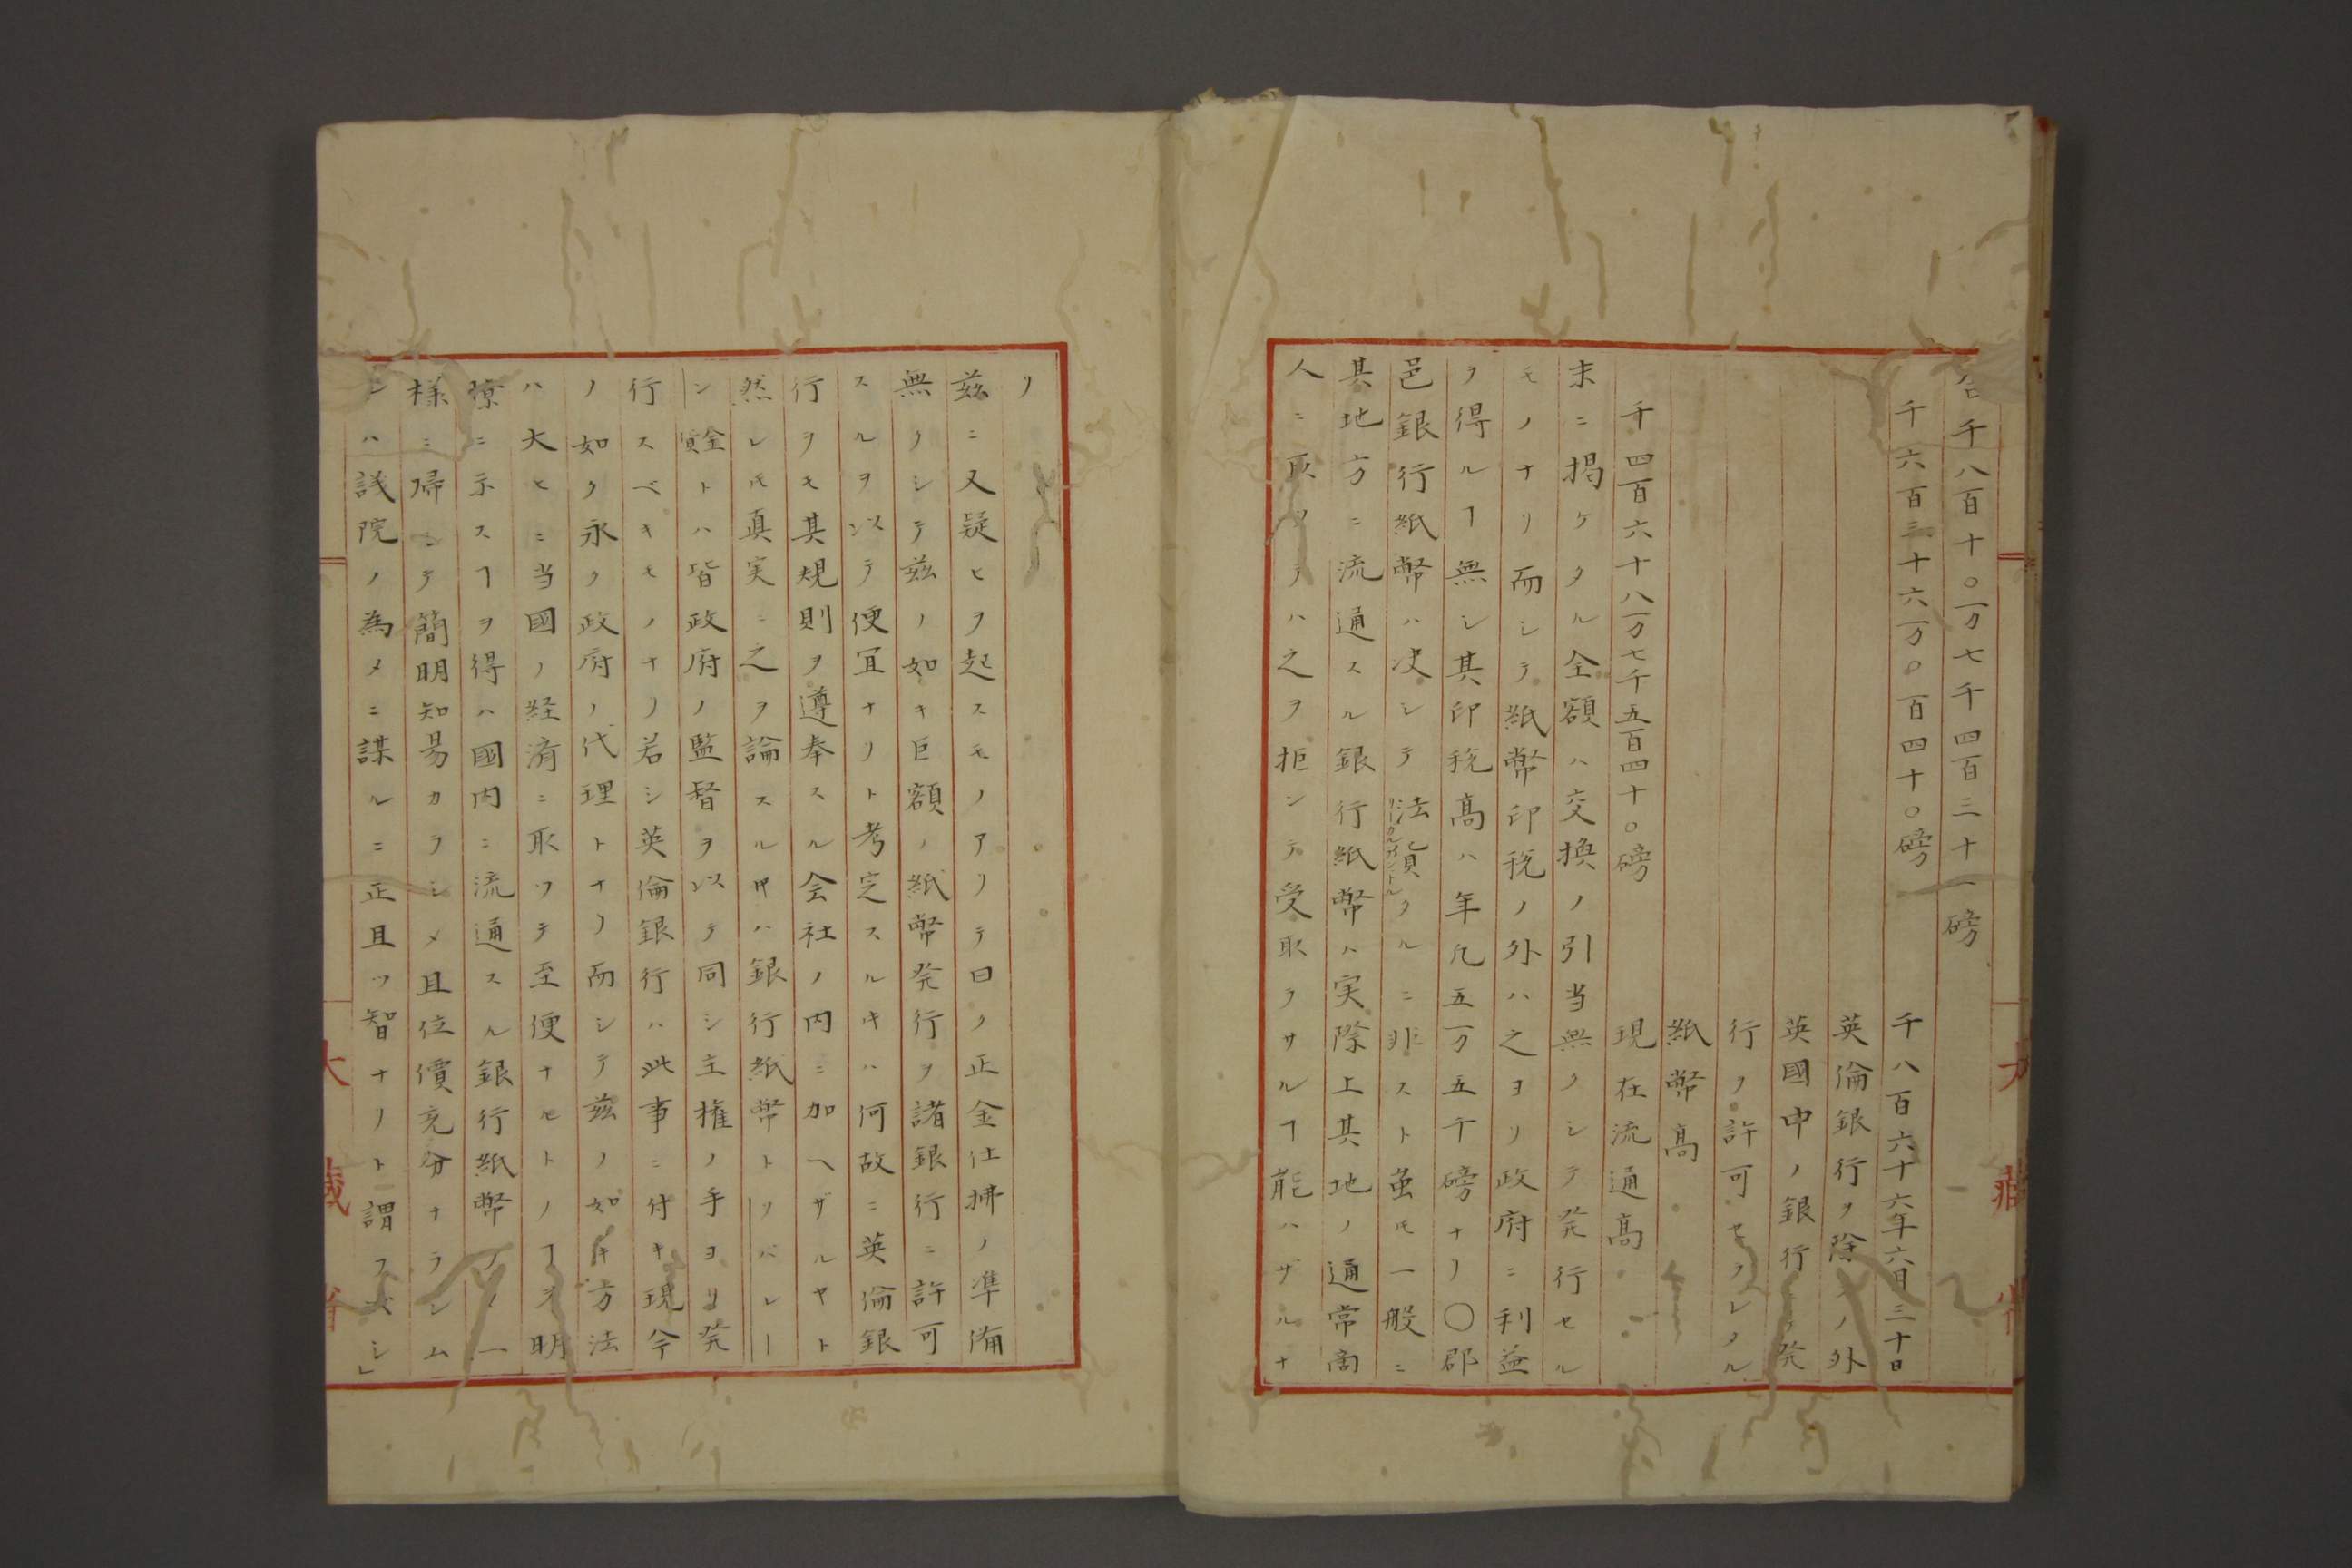 合千八百十〇万七千四百三十一磅
千六百三十六万〇百四十〇磅 千八百六十六年六月三十日
英倫銀行ヲ除キノ外
英國中ノ銀行ニ発
行ヲ許可セラレタル
紙幣高
千四百六十八万七千五百四十〇磅 現在流通高
末ニ掲ケタル全額ハ交換ノ引当無クシテ発行セル
モノナリ而シテ紙幣印税ノ外ハ之ヨリ政府ニ利益
ヲ得ルヿ無シ其印税高ハ年凡五万五千磅ナリ〇郡
邑銀行紙幣ハ决シテ法貨タルニ非スト虽𪜈一般ニ
其地方ニ流通スル銀行紙幣ハ実際上其地ノ通常商
人ニ取ツテハ之ヲ拒ンテ受取ラサルヿ能ハザルナ
リ
茲ニ又疑ヒヲ起スモノアリテ曰ク正金仕拂ノ準備
無クシテ茲ノ如キ巨額ノ紙幣発行ヲ諸銀行ニ許可
スルヲ以テ便宜ナリト考定スルキハ何故ニ英倫銀
行ヲモ其規則ヲ遵奉スル会社ノ内ニ加ヘザルヤト
然レ𪜈真実ニ之ヲ論スルキハ銀行紙幣トソバレー
ン金貨トハ皆政府ノ監督ヲ以テ同シ主権ノ手ヨリ発
行スベキモノナリ若シ英倫銀行ハ此事ニ付キ現今
ノ如ク永ク政府ノ代理トナリ而シテ茲ノ如キ方法
ハ大ヒニ当國ノ経済ニ取ツテ至便ナルモトノヿヲ明
瞭ニ示スヿヲ得ハ國内ニ流通スル銀行紙幣ノ一
様ニ帰シテ簡明知易カラシメ且位價充分ナラシム
ンハ議院ノ為メニ謀ルニ正且ツ智ナリト謂フベシ」
大藏省
大藏省